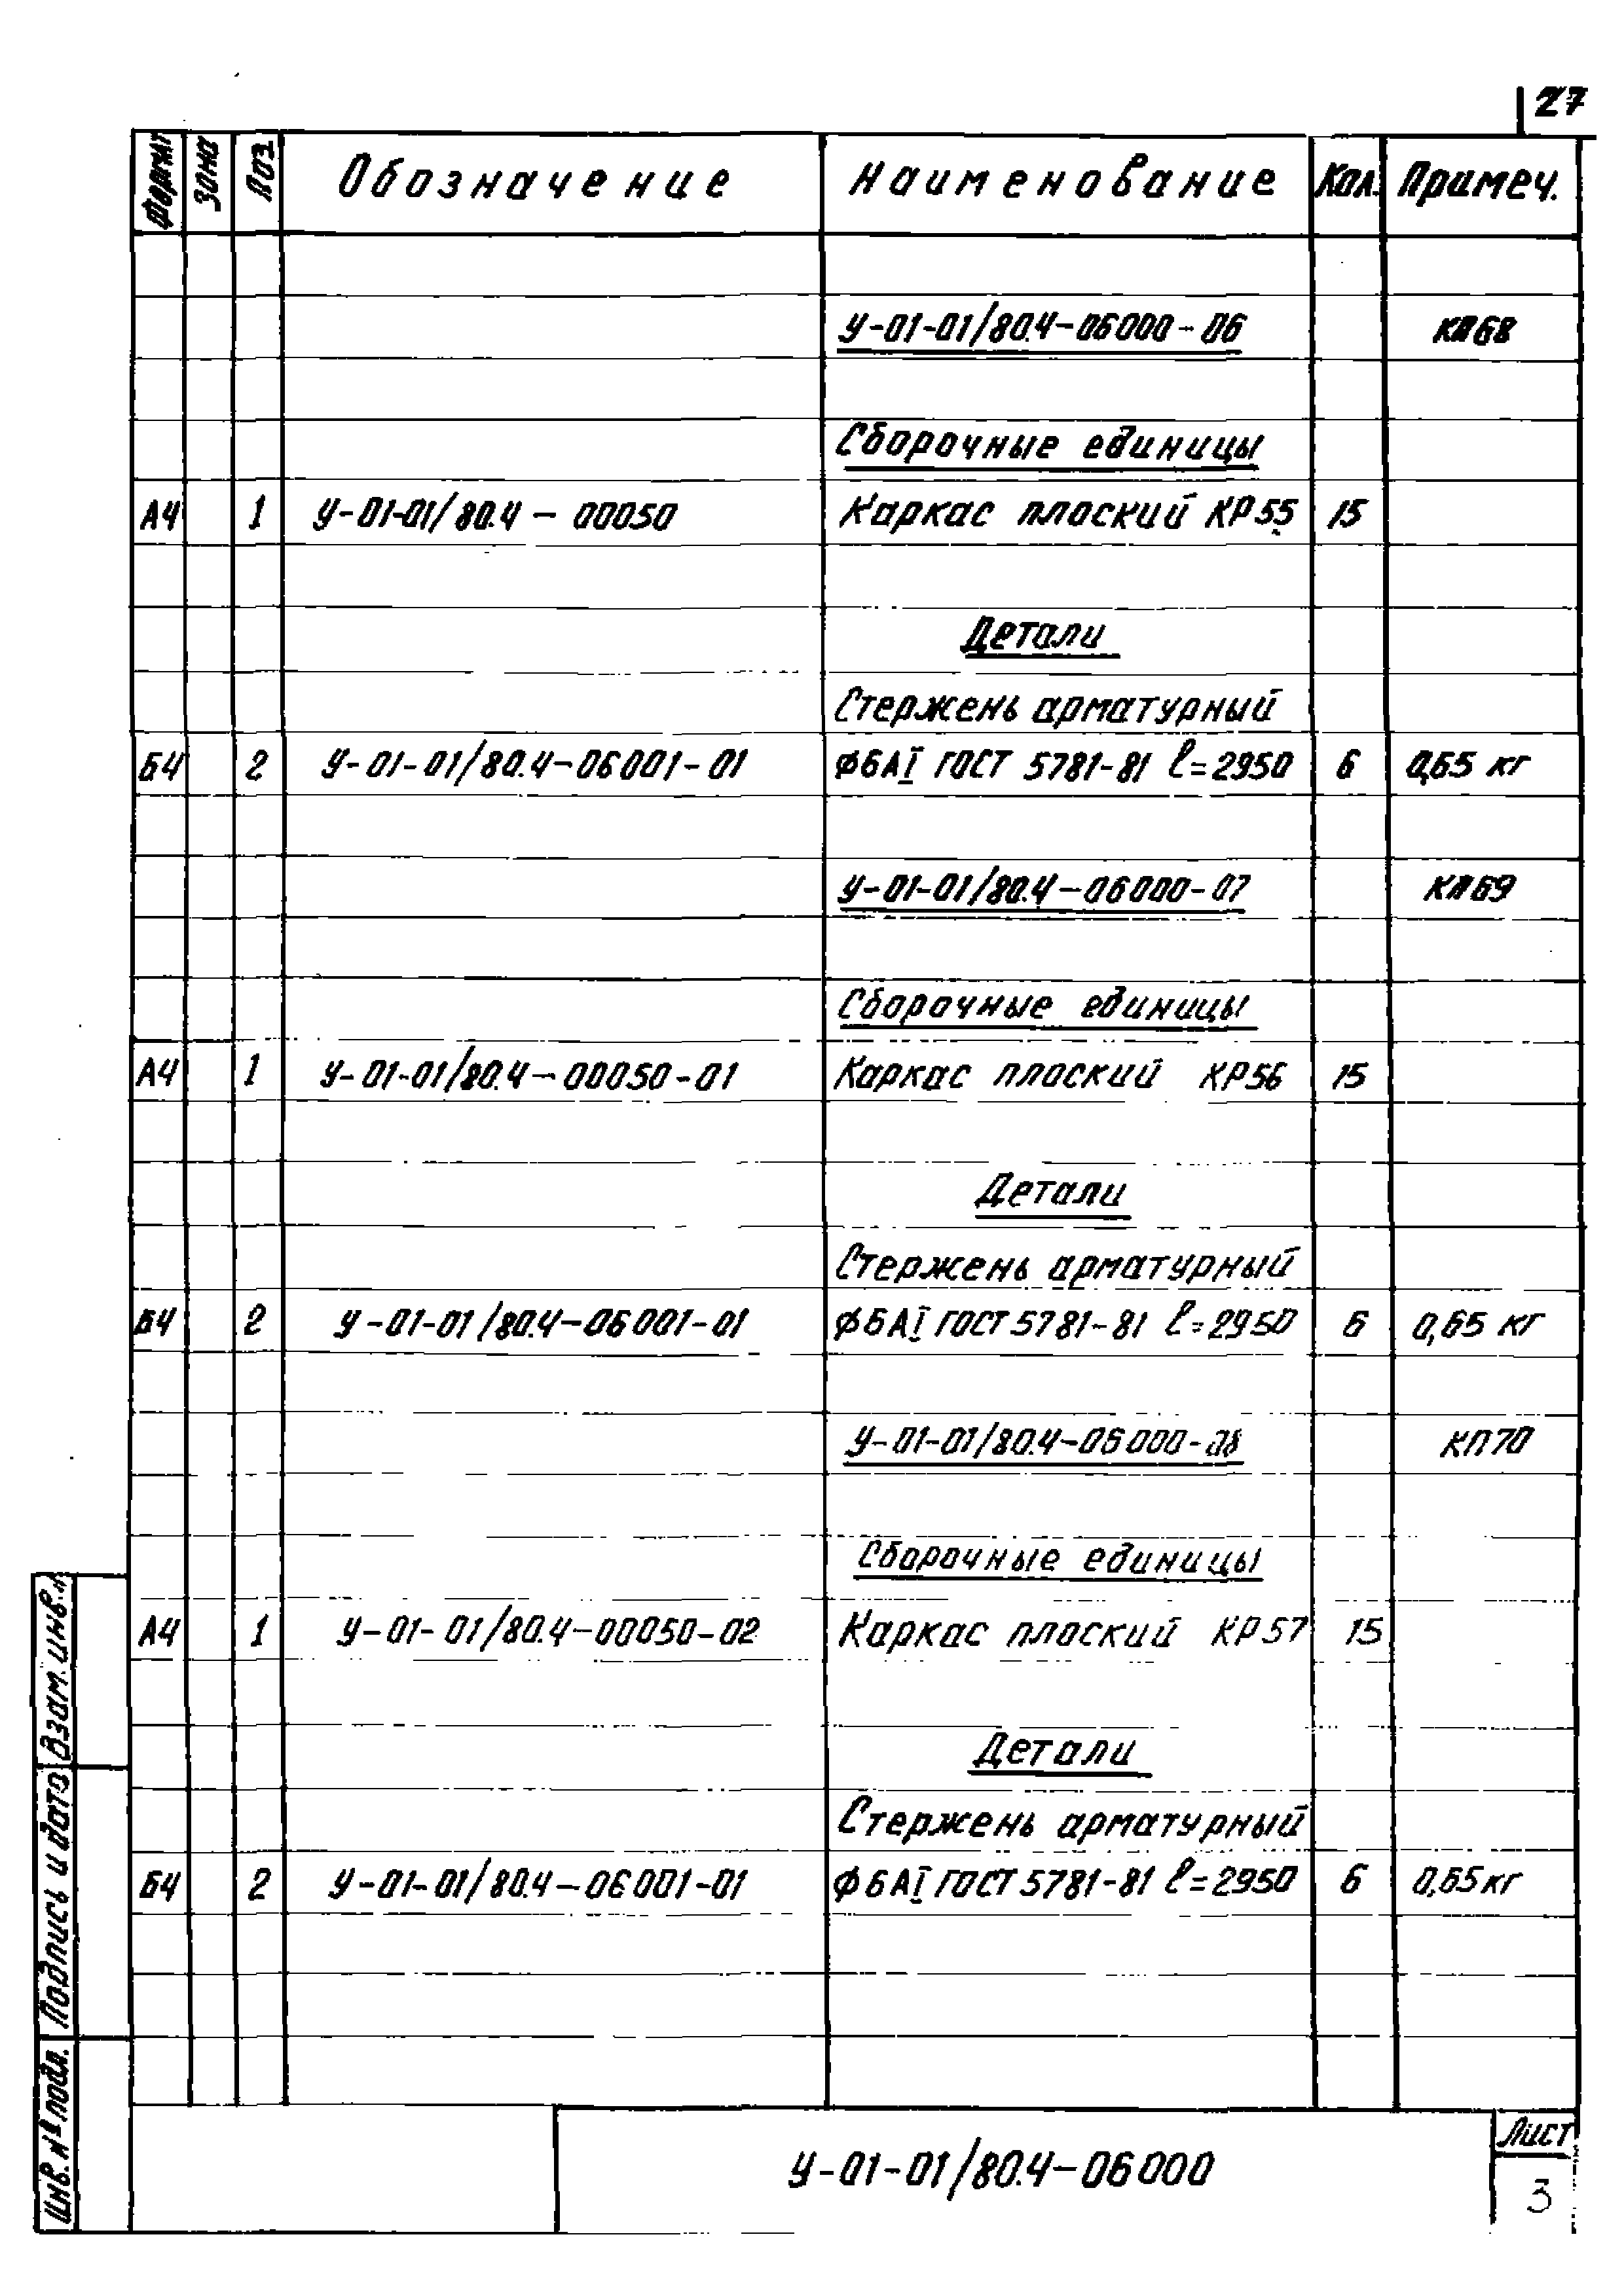 27
Формат Зона Поз. Обозначение Наименование Кол. Примеч.
У-01-01/80.4-06000-06 КП68
Сборочные единицы
А4 1 У-01-01/80.4-00050 Каркас плоский КР55 15
Детали
Стержень арматурный
Б4 2 У-01-01/80.4-06001-01 ф6АI ГОСТ 5781-81 l=2950 6 0,65 кг
У-01-01/80.4-06000-07 КП69
Сборочные единицы
А4 1 У-01-01/80.4-00050-01 Каркас плоский КР56 15
Детали
Стержень арматурный
Б4 2 У-01-01/80.4-06001-01 ф6АI ГОСТ 5781-81 l=2950 6 0,65 кг
У-01-01/80.4-06000-08 КП70
Сборочные единицы
А4 1 У-01-01/80.4-00050-02 Каркас плоский КР57 15
Детали
Стержень арматурный
Б4 2 У-01-01/80.4-06001-01 ф6АI ГОСТ 5781-81 l=2950 6 0,65 кг
Взам. инв. №
Подпись и дата
Инв. № подл.
У-01-01/80.4-06000
Лист
3